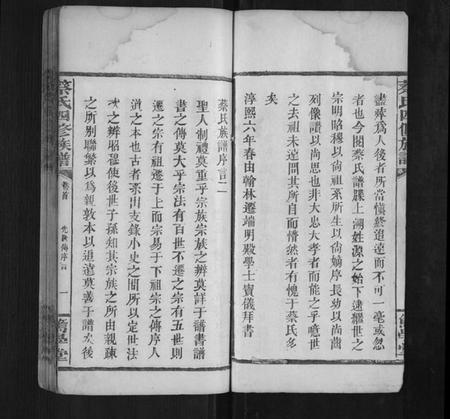 蔡氏四修族譜
盡葬爲人後者所當愼終追遠而不可一毫或忽
者也今閱蔡氏譜牒上溯姓源之始下逮繼世之
宗明昭穆以尙祖系所生以尙嫡序長幼以尙齒
列像讚以尙思也非大忠大孝者而能之乎噫世
之去祖未遠問其所自而懵然者有愧于蔡氏多
矣
淳熙六年春由翰林遷端明殿學士竇儀拜書
蔡氏族譜序言二
聖人制禮莫重乎宗族宗族之辨莫詳于譜書譜
書之傳莫大乎宗法有百世不遷之宗有五世則
遷之宗有祖遷于上而宗易于下祖宗之傳序人
道之本也古者掌出支錄小史之閒所以定世法
次之辨昭穆使後世子孫知其宗族之所由親疎
之所別聯縈以爲親敦本以追遠莫善于譜欠後
蔡氏四修族譜
卷首
先後傳序言
一
濟學堂